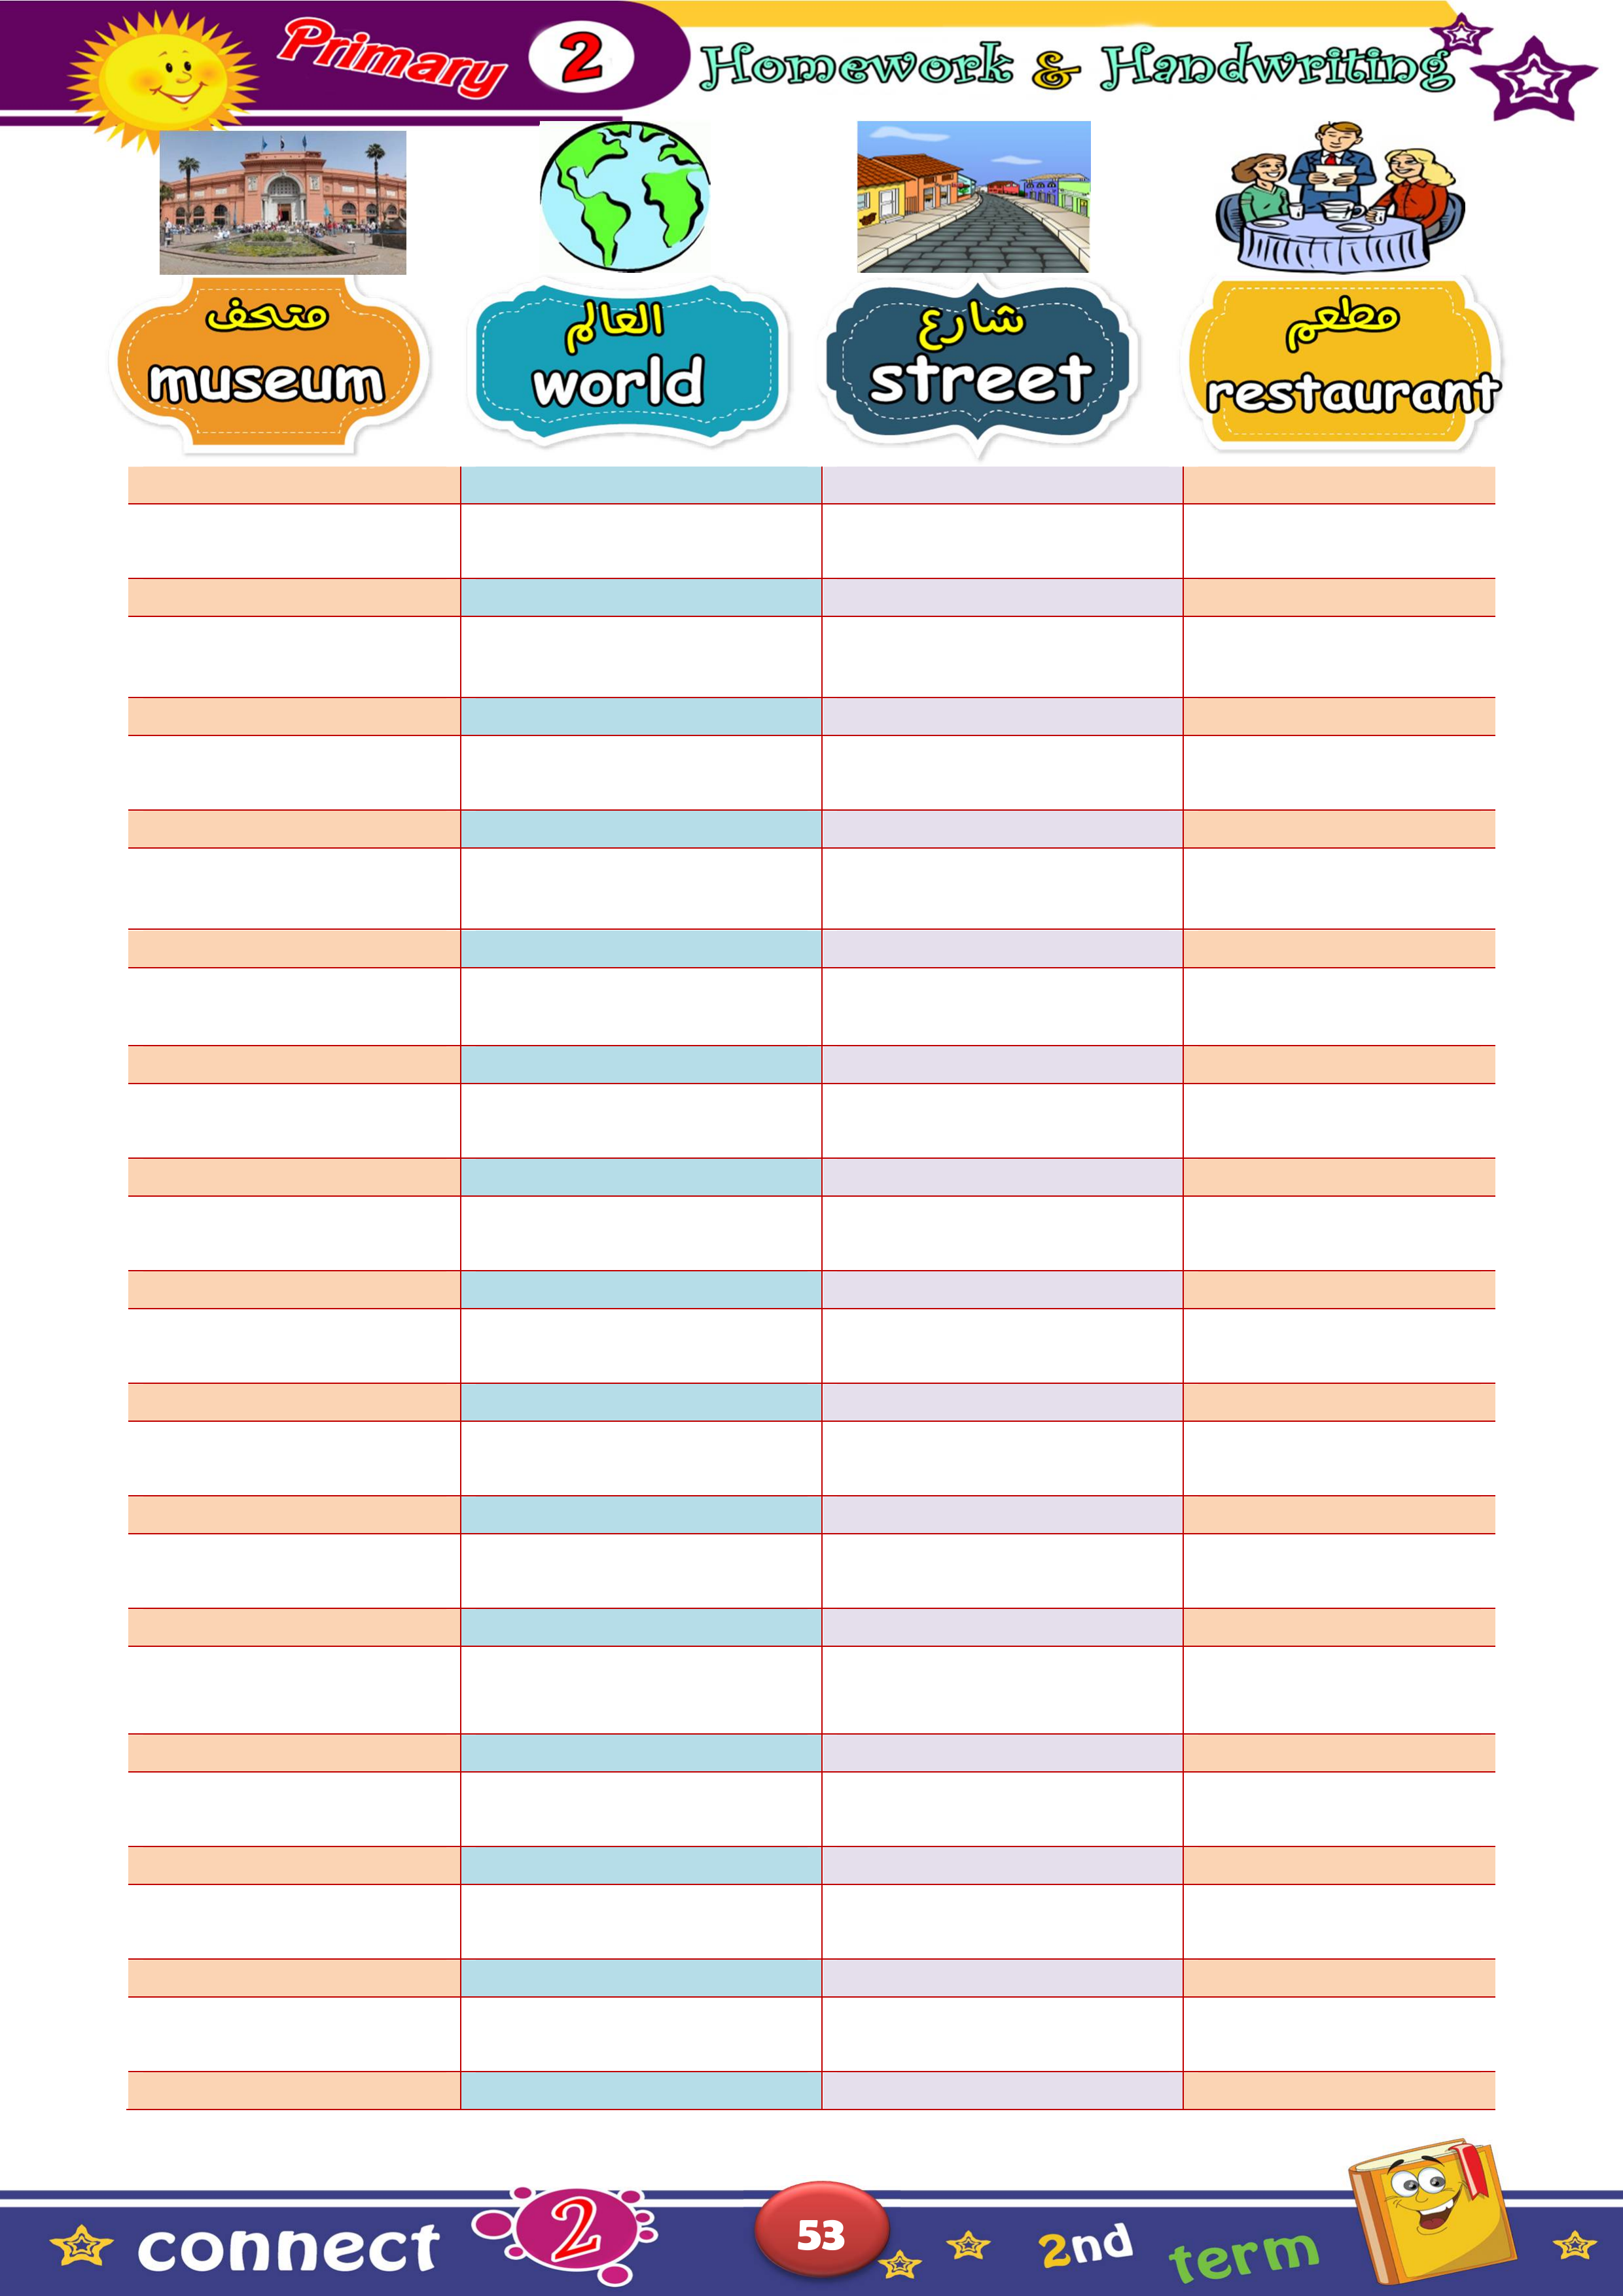 Primary 2 Homework & Handwriting
متحف
museum
العالم
world
شارع
street
مطعم
restaurant
connect 2
53
2nd term